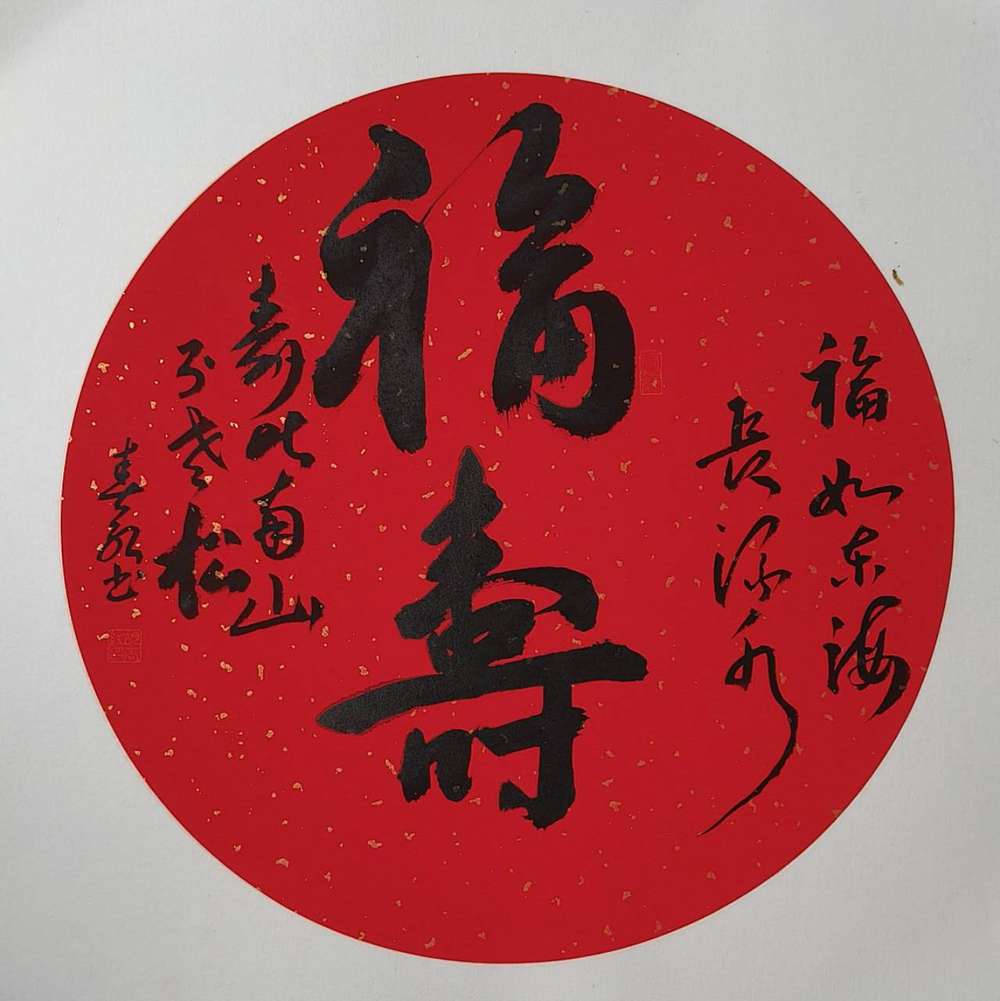 福如东海
長流水
福壽
壽比南山
不老松
春书